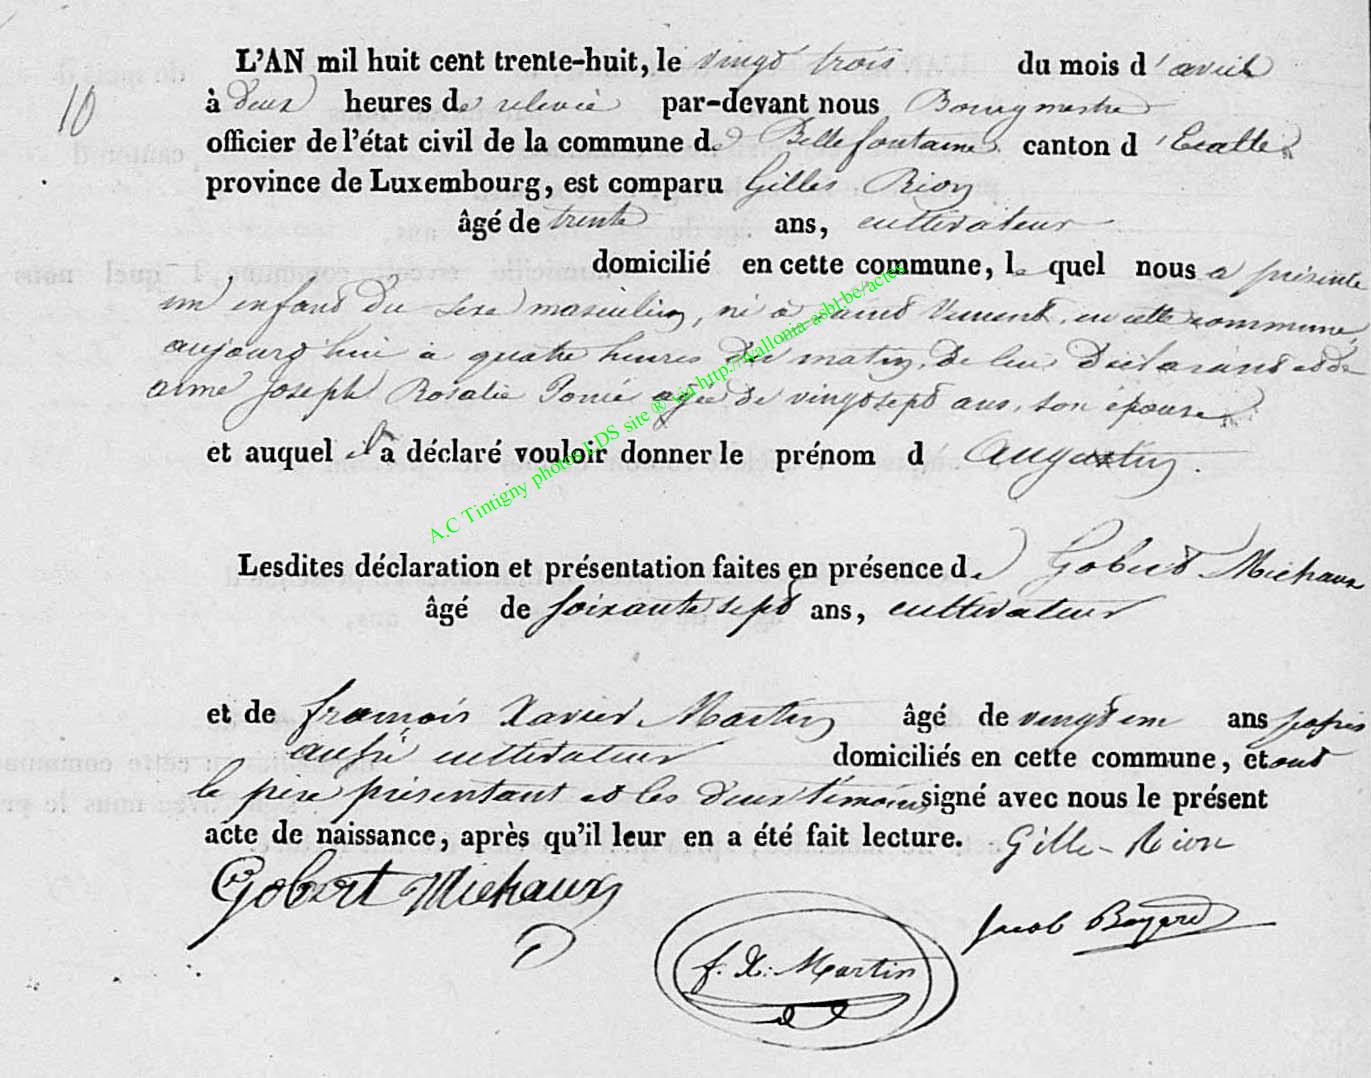 10
L'AN mil huit cent trente-huit, le vingt trois du mois d'avril
à deux heures de relevée par-devant nous Bourgmestre
officier de l'état civil de la commune de Bellefontaine canton d'Etalle
province de Luxembourg, est comparu Gilles Rion
âgé de trente ans, cultivateur
domicilié en cette commune, le quel nous a présenté
un enfant du sexe masculin, né à Saint Vincent, en cette commune
aujourd'hui à quatre heures du matin, de lui déclarant et de
aimé Joseph Rosalie agée de vingt sept ans, son épouse
et auquel il a déclaré vouloir donner le prénom d Augustin.
Lesdites déclaration et présentation faites en présence de Gobert Michaux
âgé de soixante sept ans, cultivateur
et de françois Xavier Martin âgé de vingt un ans passés
aussi cultivateur domiciliés en cette commune, et ont
le père présentant et les deux témoins signé avec nous le présent
acte de naissance, après qu'il leur en a été fait lecture. Gille Rion
Gobert Michaux
Jacob Bayard
f. X. Martin
A.C Tintigny photos LDS site ® via http://wallonia-asbl.be/actes